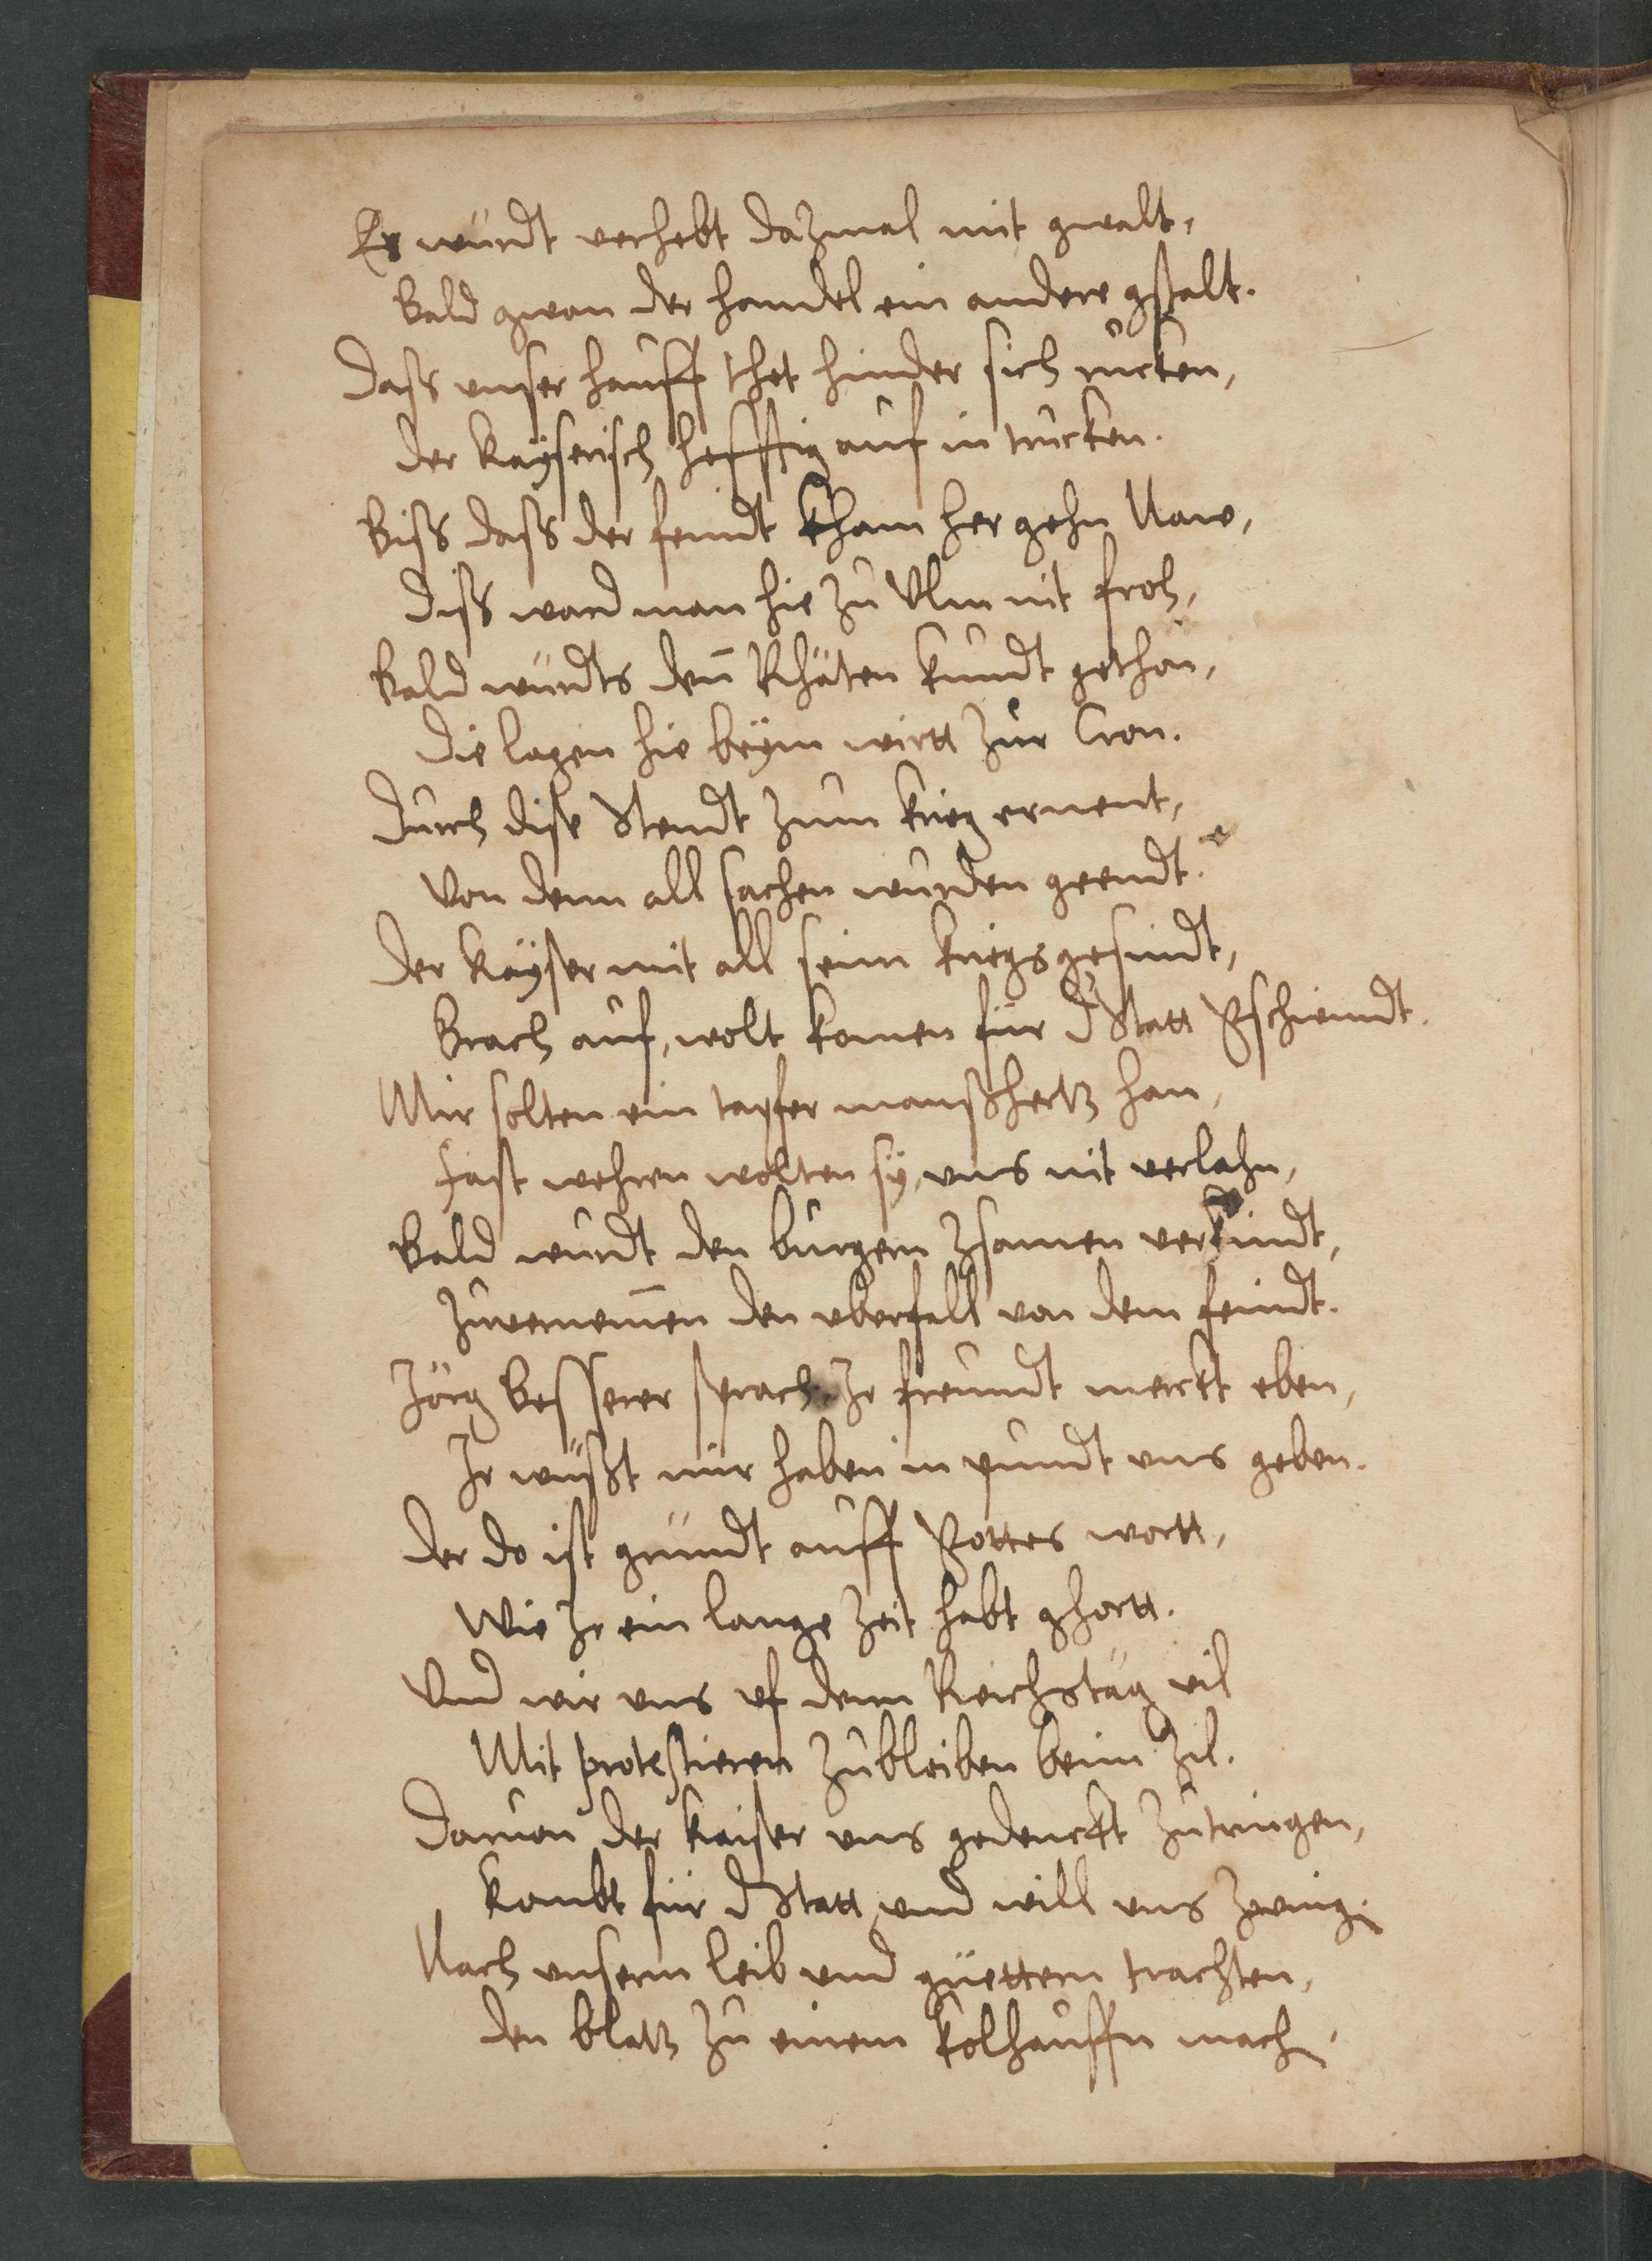 Es würdt verhebt dazmal mit gwalt,
Bald gwan der handel ein andere gstalt.
Dass unser hauff thet hinder sich rucken,
Der Kayserisch hefftig auf in trucken.
Biss dass der feindt kham her gehn Naw,
Diss ward man hie zu Ulm nit froh,
Bald würdts den̄ Rhäten kundt gethon,
Die lagen hie beÿm wirtt zur Cron.
Durch dise Stendt zum krieg ernent,
Von denn all sachen wurden geendt.
Der Kayser mit all seim kriegsgesindt,
Brach auf, wolt komen für d Statt gschwindt.
Mir solten ein tapfer manssherz han,
Fast wehren wolten sÿ, uns nit verlahn,
Bald wurdt den burgern zsamen verkindt,
Zuvernem̄en den uberfall von dem feindt.
Jörg Besserer sprach Ir freundt merckt eben,
Ir wüsst mir haben in pundt uns geben.
Der do ist gründt auff Gottes wortt,
Wie Ir ein lange Zeit habt ghortt.
Und wir uns uf denn Reichstäg vil
Mit protestieren zubleiben beim Zil.
Darvon der Kaiser uns gedenckt zutringen,
Kombt für d Statt und will uns zwing.
Nach unserm leib und güettern trachten,
Den blatz zu einem kolhauffn mach.